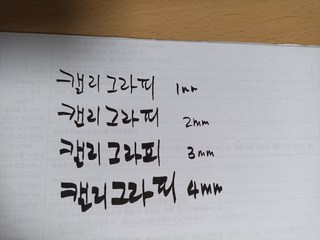 캘리그라피 1mm
캘리그라피 2mm
캘리그라피 3mm
캘리그라피 4mm